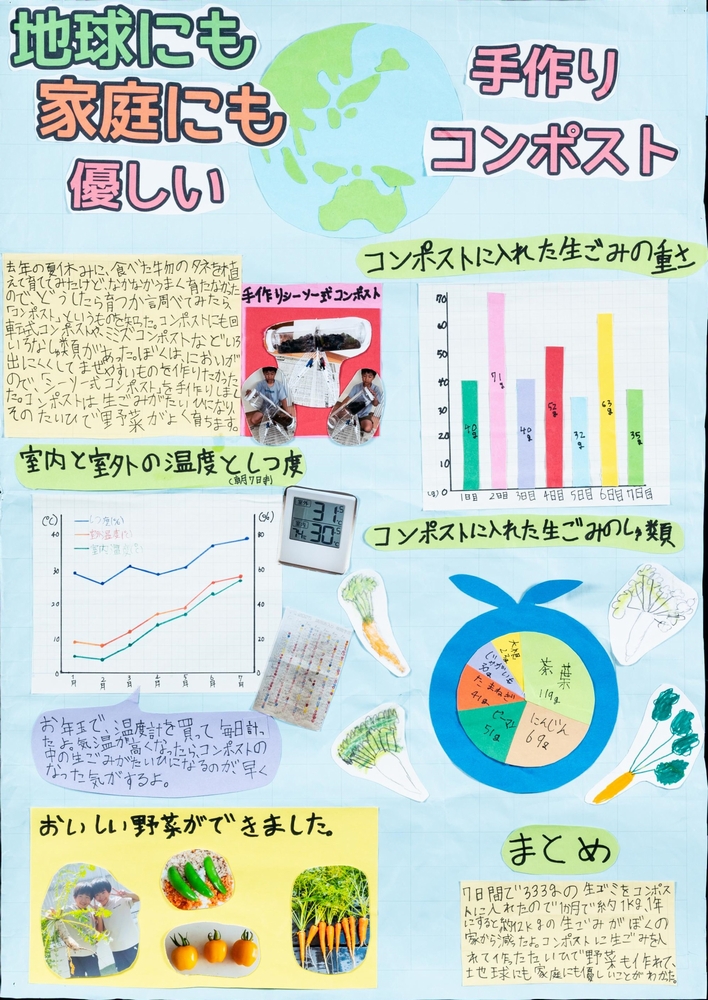 地球にも
家庭にも
優しい
手作り
コンポスト
去年の夏休みに、食べた牛物のタネを植
えて育ててみたけど、なかなかうまく育たなかった
ので、どうしたら育つか調べてみたら
「コンポスト」というものを知った。コンポストにも回
転式コンポストや、ミズコンポストなどいろ
いろなしゅ類があった。ぼくは、においが
出にくくしてまぜやすいものを作りたかった
ので、「シーソー式コンポスト」を手作りしまし
た。コンポストは生ごみがたいひになり、
そのたいひで野菜がよく育ちます。
手作りシーソー式コンポスト
コンポストに入れた生ごみの重さ
70
60
50
40
30
20
10
0
(g)
40g
71g
40g
52g
32g
63g
35g
1日目 2日目 3日目 4日目 5日目 6日目 7日目
室内と室外の温度としつ度
(朝7日寺)
(℃)
(%)
しつ度(%)
室外温度(℃)
室内温度(℃)
40
30
20
10
0
80
60
40
20
0
1月 2月 3月 4月 5月 6月 7月
31.5
30.5
お年玉で、温度計を買って毎日計っ
たよ。気温が高くなったら、コンポストの
中の生ごみがたいひになるのが早く
なった気がするよ。
コンポストに入れた生ごみのしゅ類
茶葉
119g
にんじん
69g
ピーマン
51g
たまねぎ
41g
じゃがいも
大根
おいしい野菜ができました。
まとめ
7日間で333gの生ゴミをコンポス
トに入れたので1か月で約1kg、1年
にすると約12kgの生ごみがぼくの
家から減ったよ。コンポストに生ごみを入
れて作ったたいひで野菜も作れて、
地球にも家庭にも優しいことがわかった。